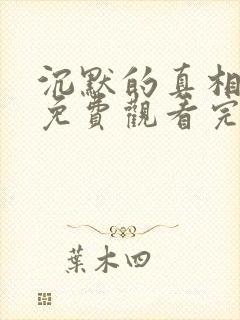 沉默的真相
免費觀看完
葉木四